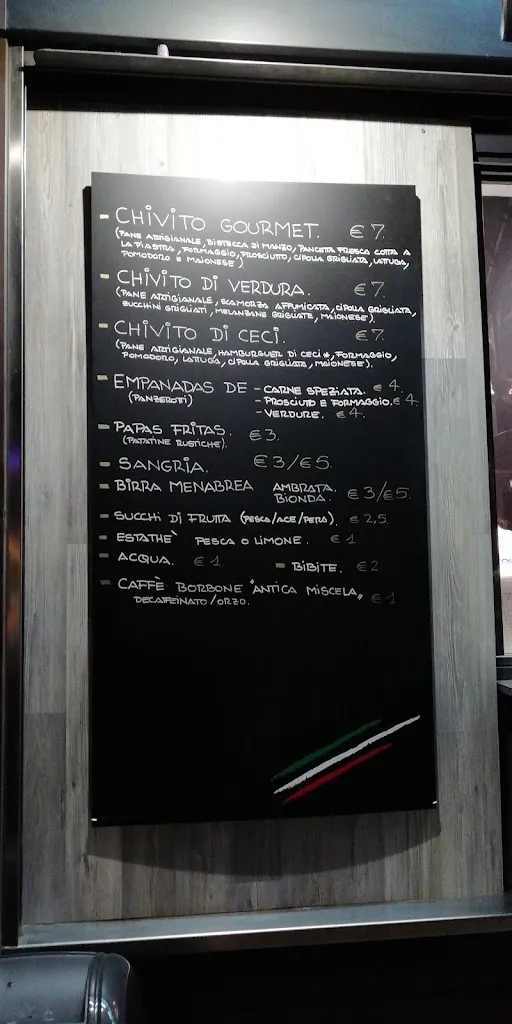 - CHIVITO GOURMET. € 7.
(PANE ARTIGIANALE, BISTECCA DI MANZO, PANCETTA FRESCA COTTA A
LA PIASTRA, FORMAGGIO, PROSCIUTTO, CIPOLLA GRIGLIATA, LATTUGA,
POMODORO E MAIONESE)
- CHIVITO DI VERDURA. € 7.
(PANE ARTIGIANALE, SCAMORZA AFFUMICATA, CIPOLLA GRIGLIATA,
ZUCCHINI GRIGLIATI, MELANZANE GRIGLIATE, MAIONESE).
- CHIVITO DI CECI. € 7.
(PANE ARTIGIANALE, HAMBURGUER DI CECI*, FORMAGGIO,
POMODORO, LATTUGA, CIPOLLA GRIGLIATA, MAIONESE).
- EMPANADAS DE - CARNE SPEZIATA. € 4.
(PANZEROTTI) - PROSCIUTO E FORMAGGIO. € 4.
- VERDURE. € 4.
- PAPAS FRITAS. € 3.
(PATATINE RUSTICHE).
- SANGRIA. € 3/€5.
- BIRRA MENABREA AMBRATA.
BIONDA. € 3/€5.
- SUCCHI DI FRUTTA (PESCA/ACE/PERA). € 2,5
- ESTATHE' PESCA O LIMONE. € 1
- ACQUA. € 1 - BIBITE. € 2
- CAFFÈ BORBONE "ANTICA MISCELA„
DECAFFEINATO/ORZO. € 1